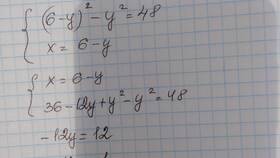 (6-y)² - y² = 48
x = 6-y
x = 6-y
36-12y+y²-y² = 48
-12y = 12